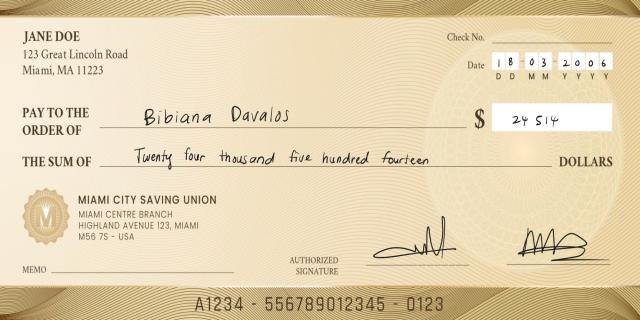 JANE DOE
123 Great Lincoln Road
Miami, MA 11223
Check No.
Date 18 03 2006
D D M M Y Y Y Y
PAY TO THE
ORDER OF Bibiana Davalos $ 24 514
THE SUM OF Twenty four thousand five hundred fourteen DOLLARS
M
MIAMI CITY SAVING UNION
MIAMI CENTRE BRANCH
HIGHLAND AVENUE 123, MIAMI
M56 7S - USA
MEMO
AUTHORIZED
SIGNATURE
A1234 - 556789012345 - 0123